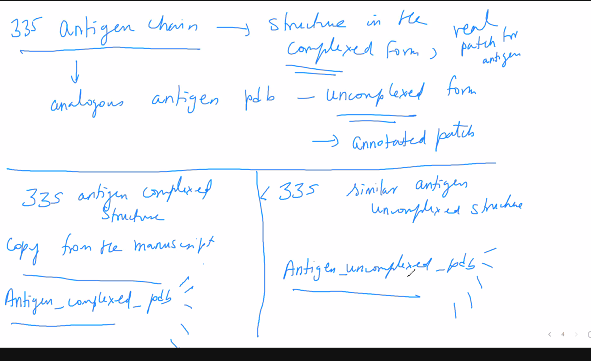 335 antigen chain → structure in the
complexed form, real
patch for
antigen
↓
analogous antigen pdb – uncomplexed form
→ annotated patch
335 antigen complexed
structure
Copy from the manuscript
Antigen_complexed_pdb
< 335 similar antigen
uncomplexed structure
Antigen_uncomplexed_pdb